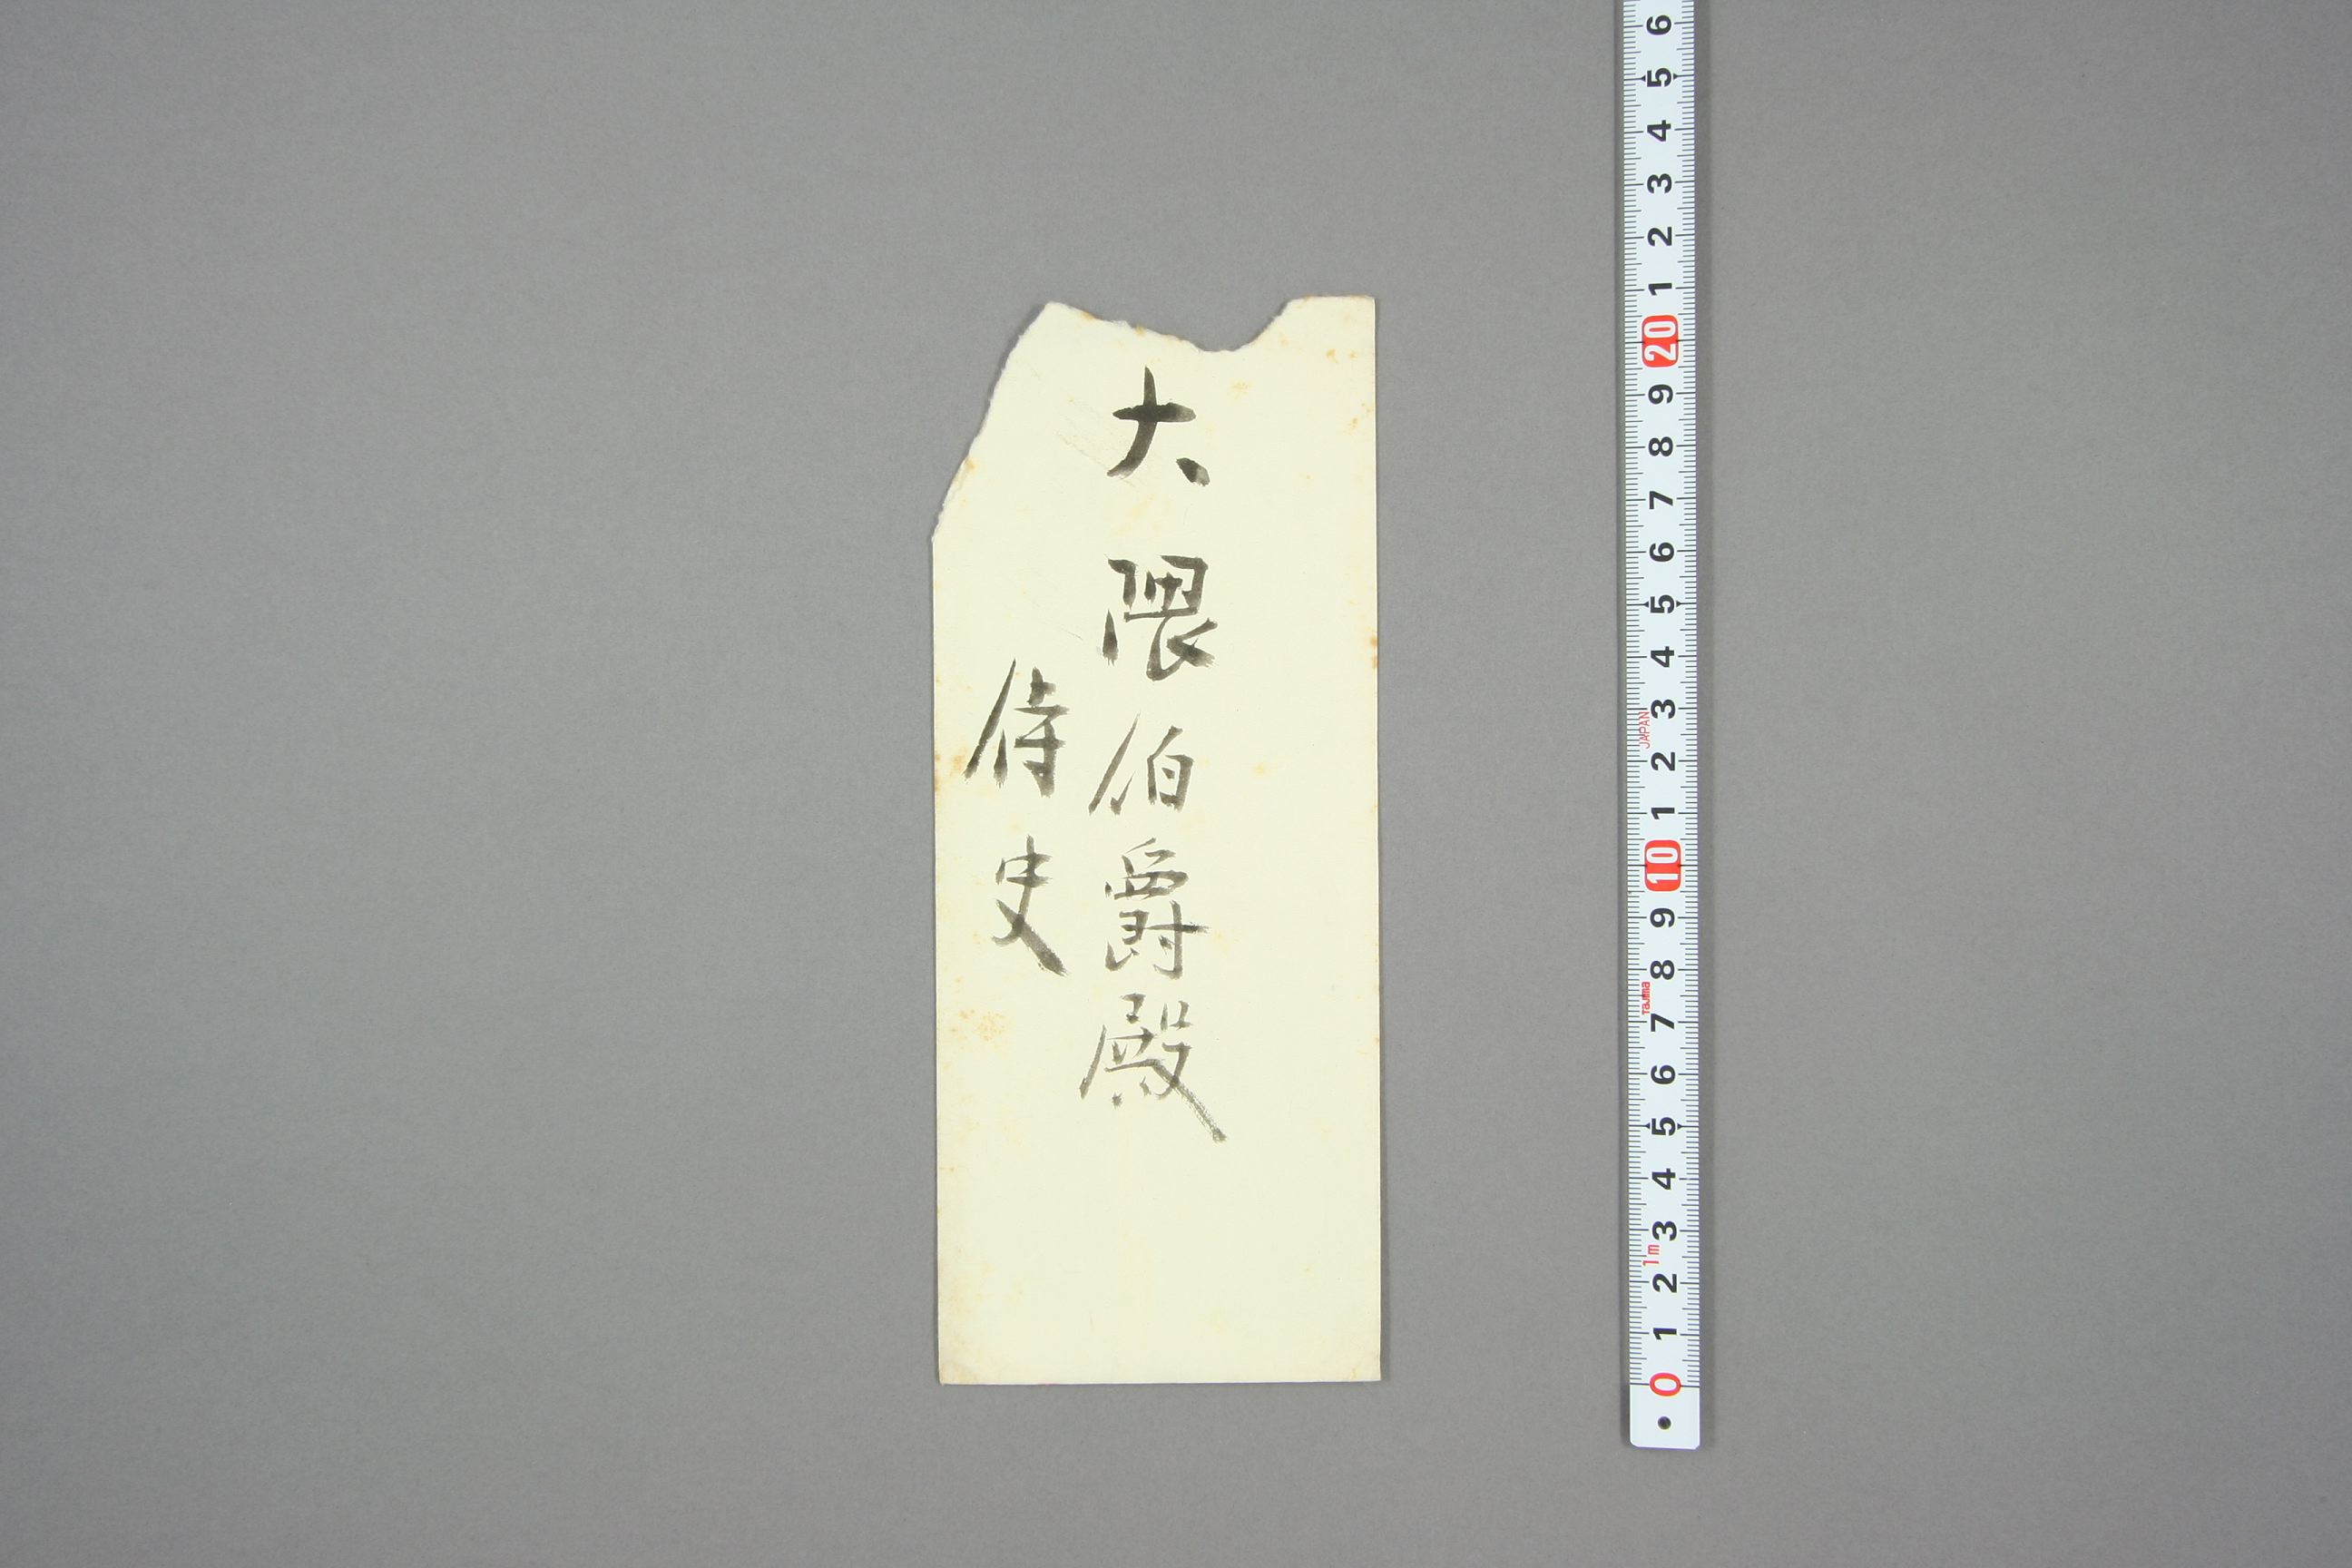 大隈伯爵殿
侍史
6
5
4
3
2
1
20
9
8
7
6
5
4
3
JAPAN
2
1
10
9
8
Tajima
7
6
5
4
3
1m
2
1
0